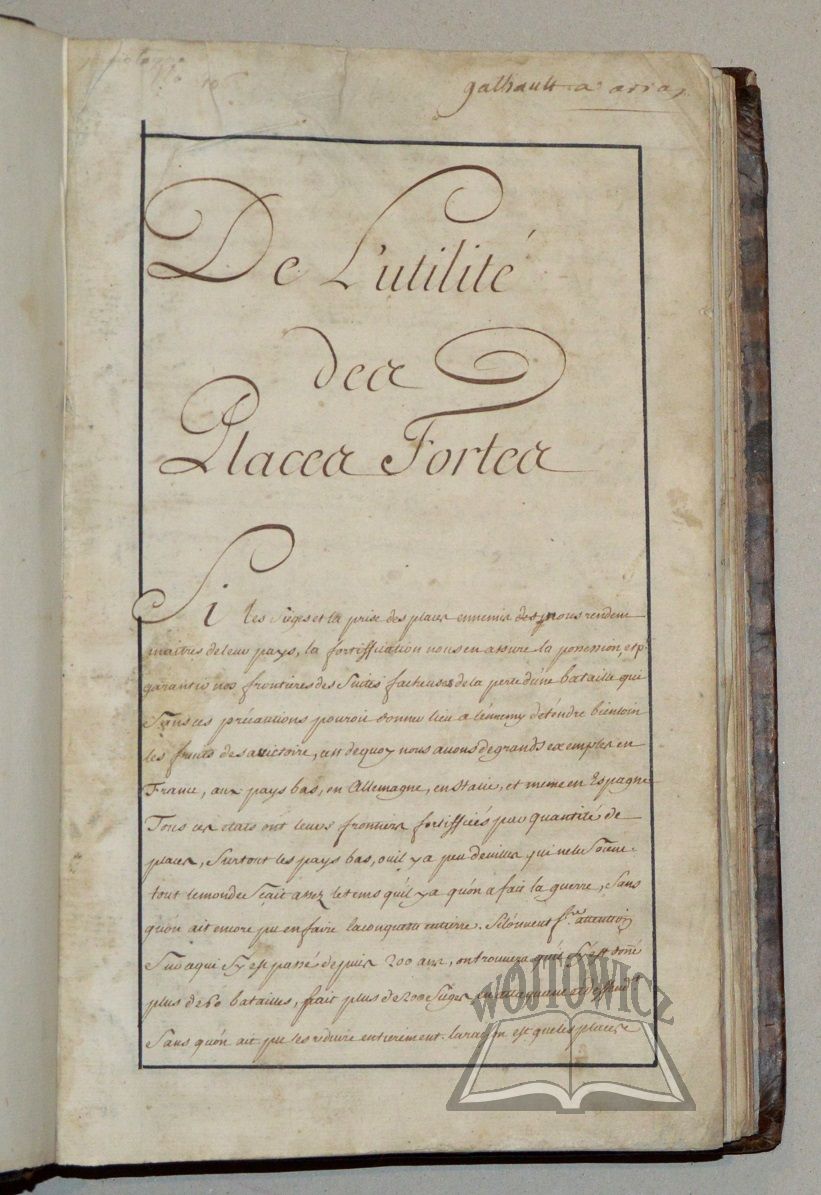 galhault a arras
De L'utilité
des
Places Fortes
Si les Sieges et la prise des places ennemis nous rendent
maitres de leur pays, la fortiffication nous en assure la possession, et
garantit nos frontieres des Suites facheuses de la perte d'une bataille qui
Sans ces précautions pouroit donner lieu a l'ennemy d'etendre bien loin
les fruits de sa victoire, de quoy nous avons de grands exemples en
France, aux pays bas, en Allemagne, en Italie, et meme en Espagne
Tous ces etats ont leurs frontieres fortiffiées par quantité de
places, Surtout les pays bas, ou il y a peu de villes qui ne le Soient
tout le monde Sçait assez le tems qu'il y a qu'on a fait la guerre, Sans
qu'on ait encore pu en faire la conqueste entiere. Si l'on veut attention
Sur a qui S'y est passé depuis 200 ans, on trouvera qu'il S'y est donné
plus de 60 batailles, fait plus de 200 Sieges
Sans qu'on ait pu les reduire entierement. la raison est que les places
WÓJTOWICZ